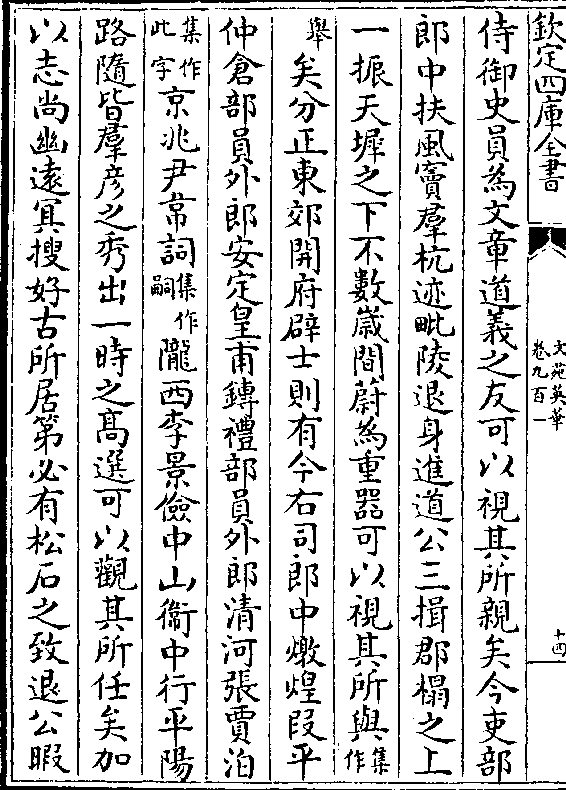 欽定四庫全書
文苑英華
卷九百一
十四
侍御史員為文章道義之友可以視其所親矣今吏部
郎中扶風竇羣杭迹毗陵退身進道公三揖郡榻之上
一振天墀之下不數歲間蔚為重器可以視其所與集作
舉矣分正東郊開府辟士則有今右司郎中燉煌段平
仲倉部員外郎安定皇甫鏄禮部員外郎清河張賈洎
集作此字京兆尹韋詞集作嗣隴西李景儉中山衞中行平陽
路隨皆羣彦之秀出一時之髙選可以觀其所任矣加
以志尚幽遠冥搜好古所居第必有松石之致退公暇